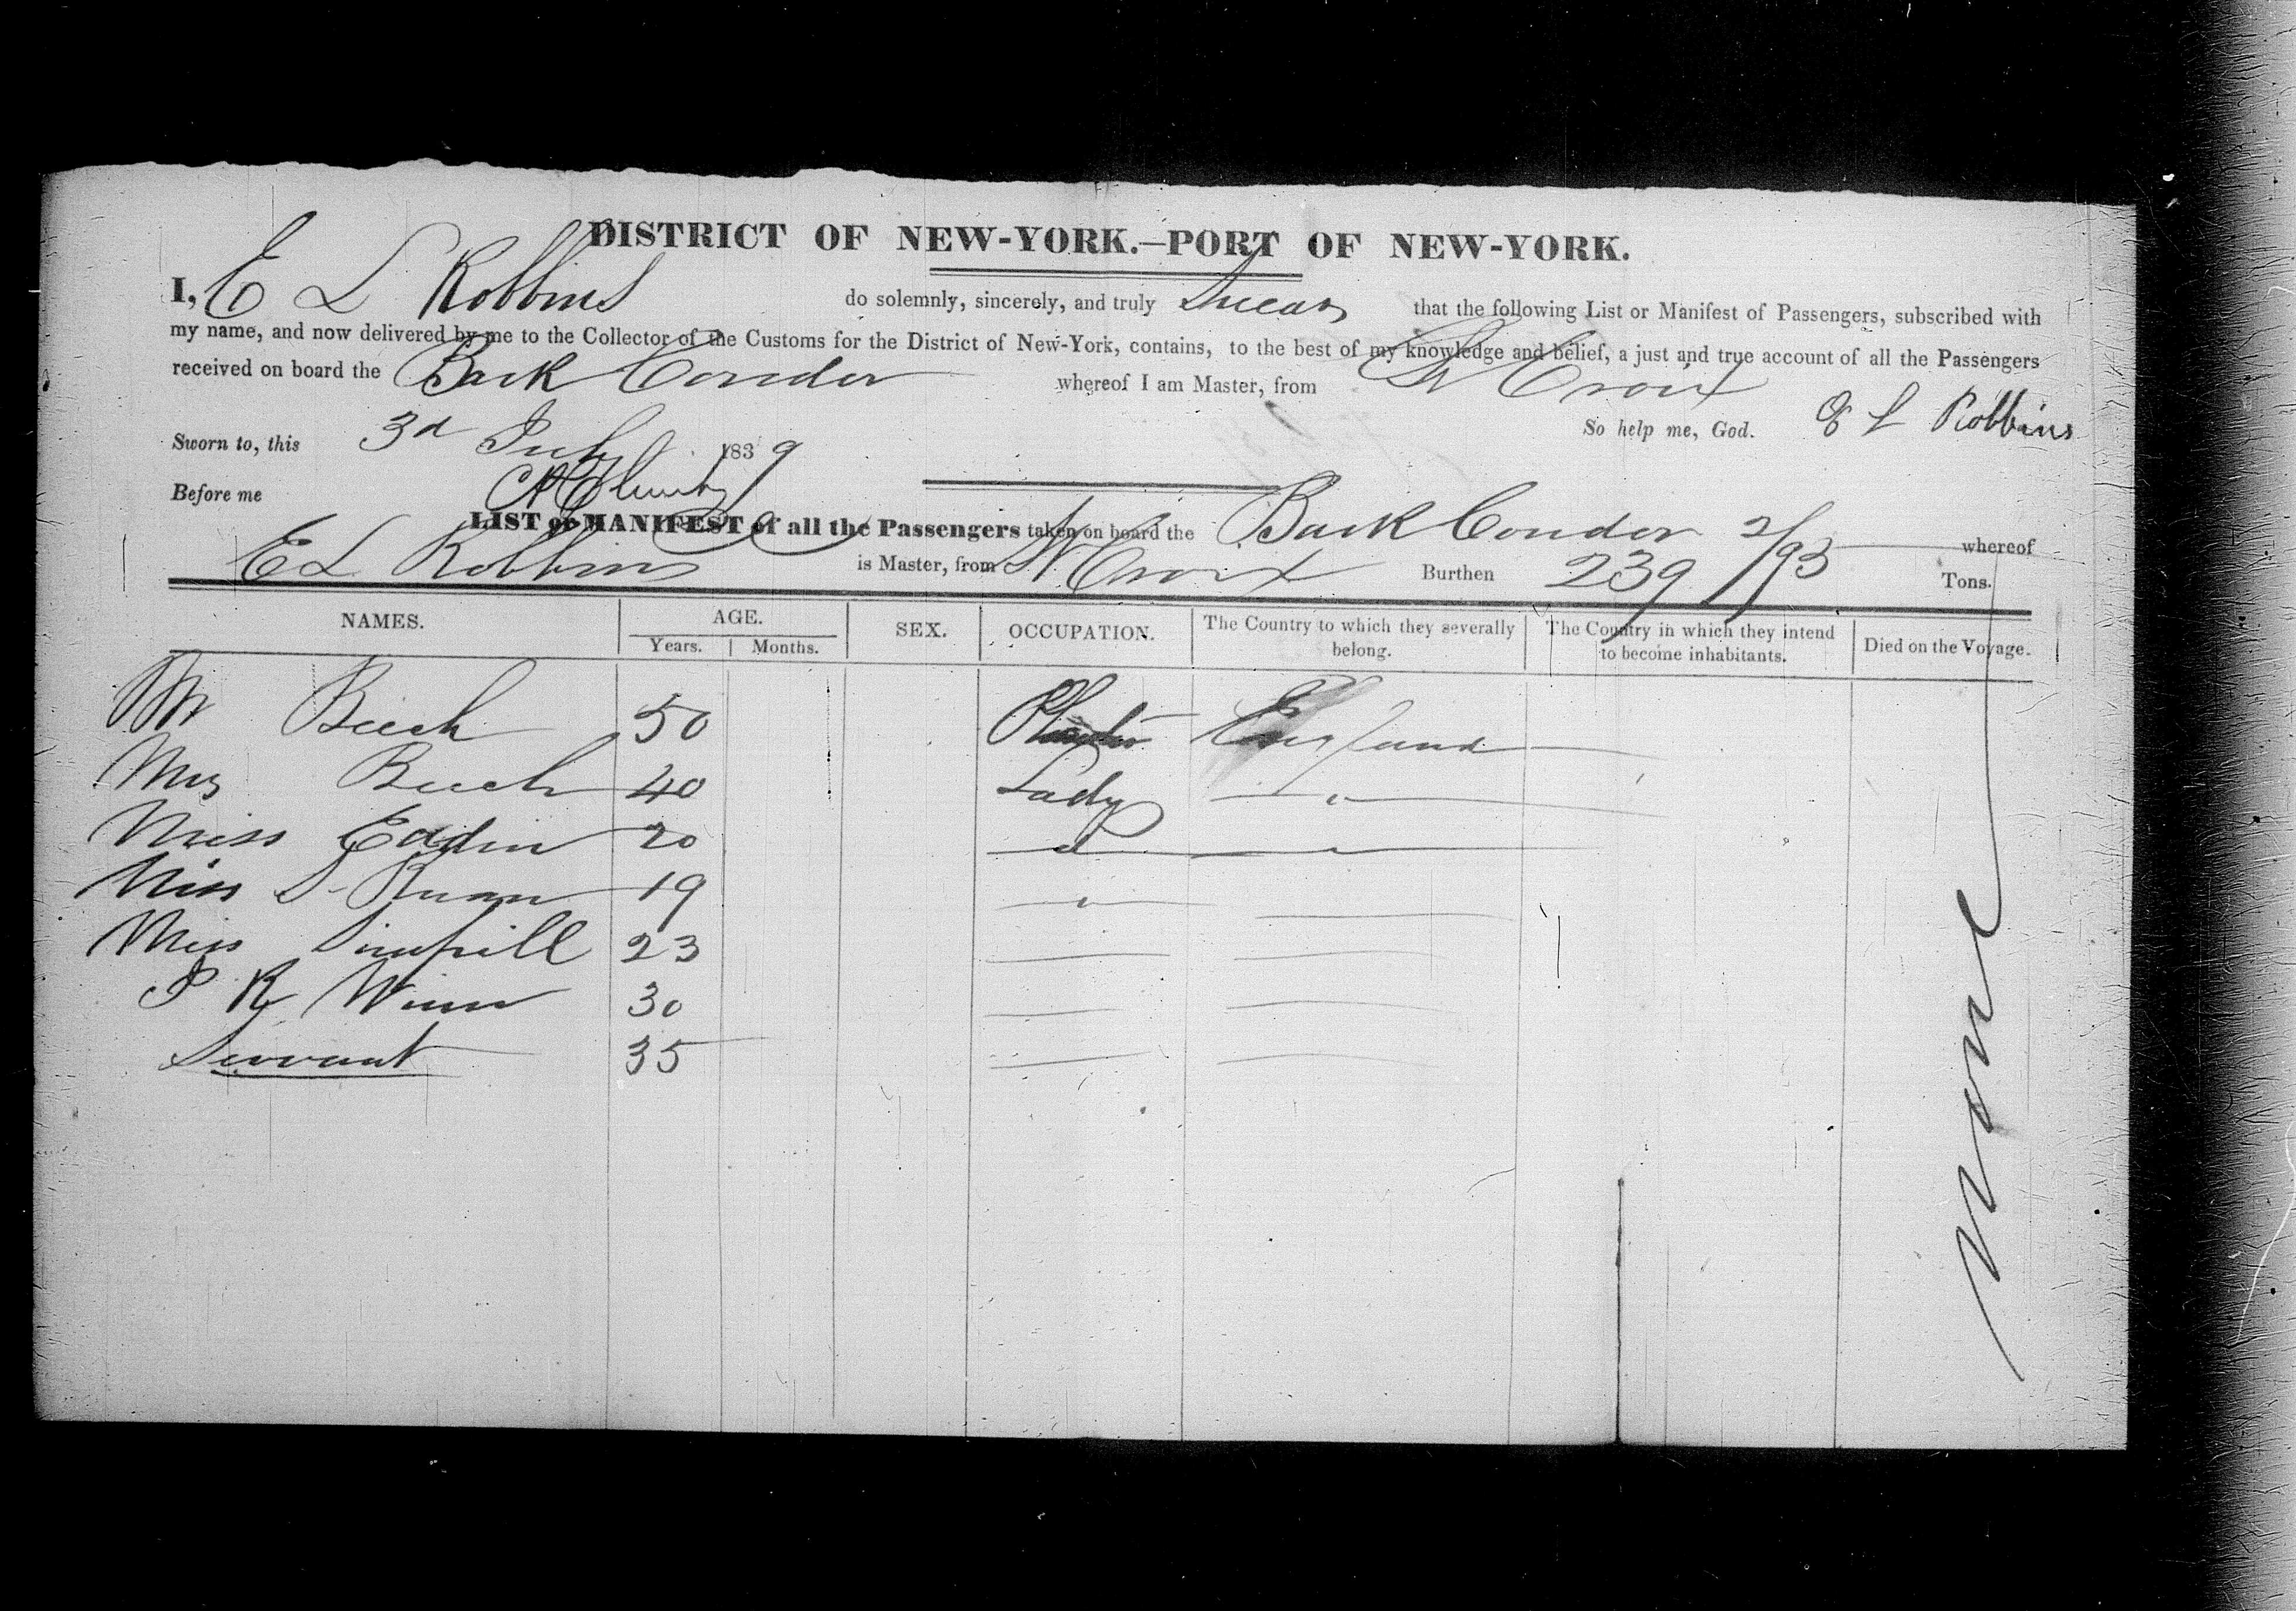 DISTRICT OF NEW-YORK.—PORT OF NEW-YORK.
I, E L Robbins do solemnly, sincerely, and truly Swear that the following List or Manifest of Passengers, subscribed with
my name, and now delivered by me to the Collector of the Customs for the District of New-York, contains, to the best of my knowledge and belief, a just and true account of all the Passengers
received on board the Bark Condor whereof I am Master, from St Croix
So help me, God. E L Robbins
Sworn to, this 3d July 1839
Before me
LIST or MANIFEST of all the Passengers taken on board the Bark Condor whereof
E L Robbins is Master, from St Croix Burthen 239 2/95 Tons.
NAMES. AGE. SEX. OCCUPATION. The Country to which they severally belong. The Country in which they intend to become inhabitants. Died on the Voyage.
Years. Months.
Mr Beech 50 Planter England
Mrs Beech 40 Lady "
Miss 20 " "
Miss S Ruan 19 "
Miss 23
P R Winn 30
Servant 35
None